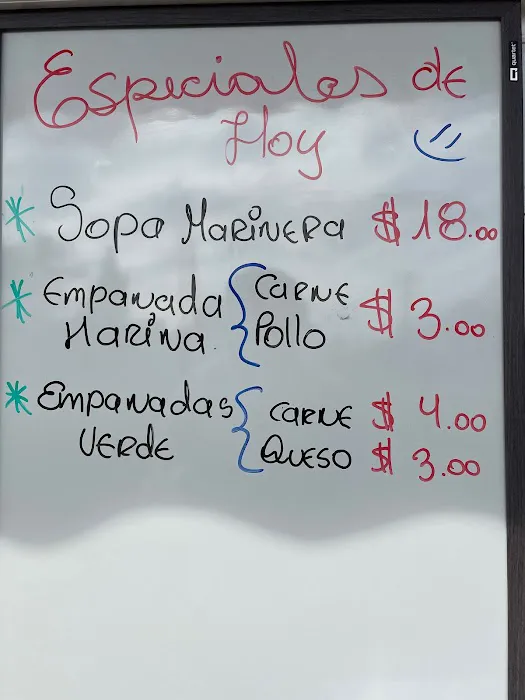 Especiales de
Hoy
* Sopa Marinera $18.00
* Empanada Harina { Carne Pollo $3.00
* Empanadas Verde { Carne $4.00
Queso $3.00
quartet